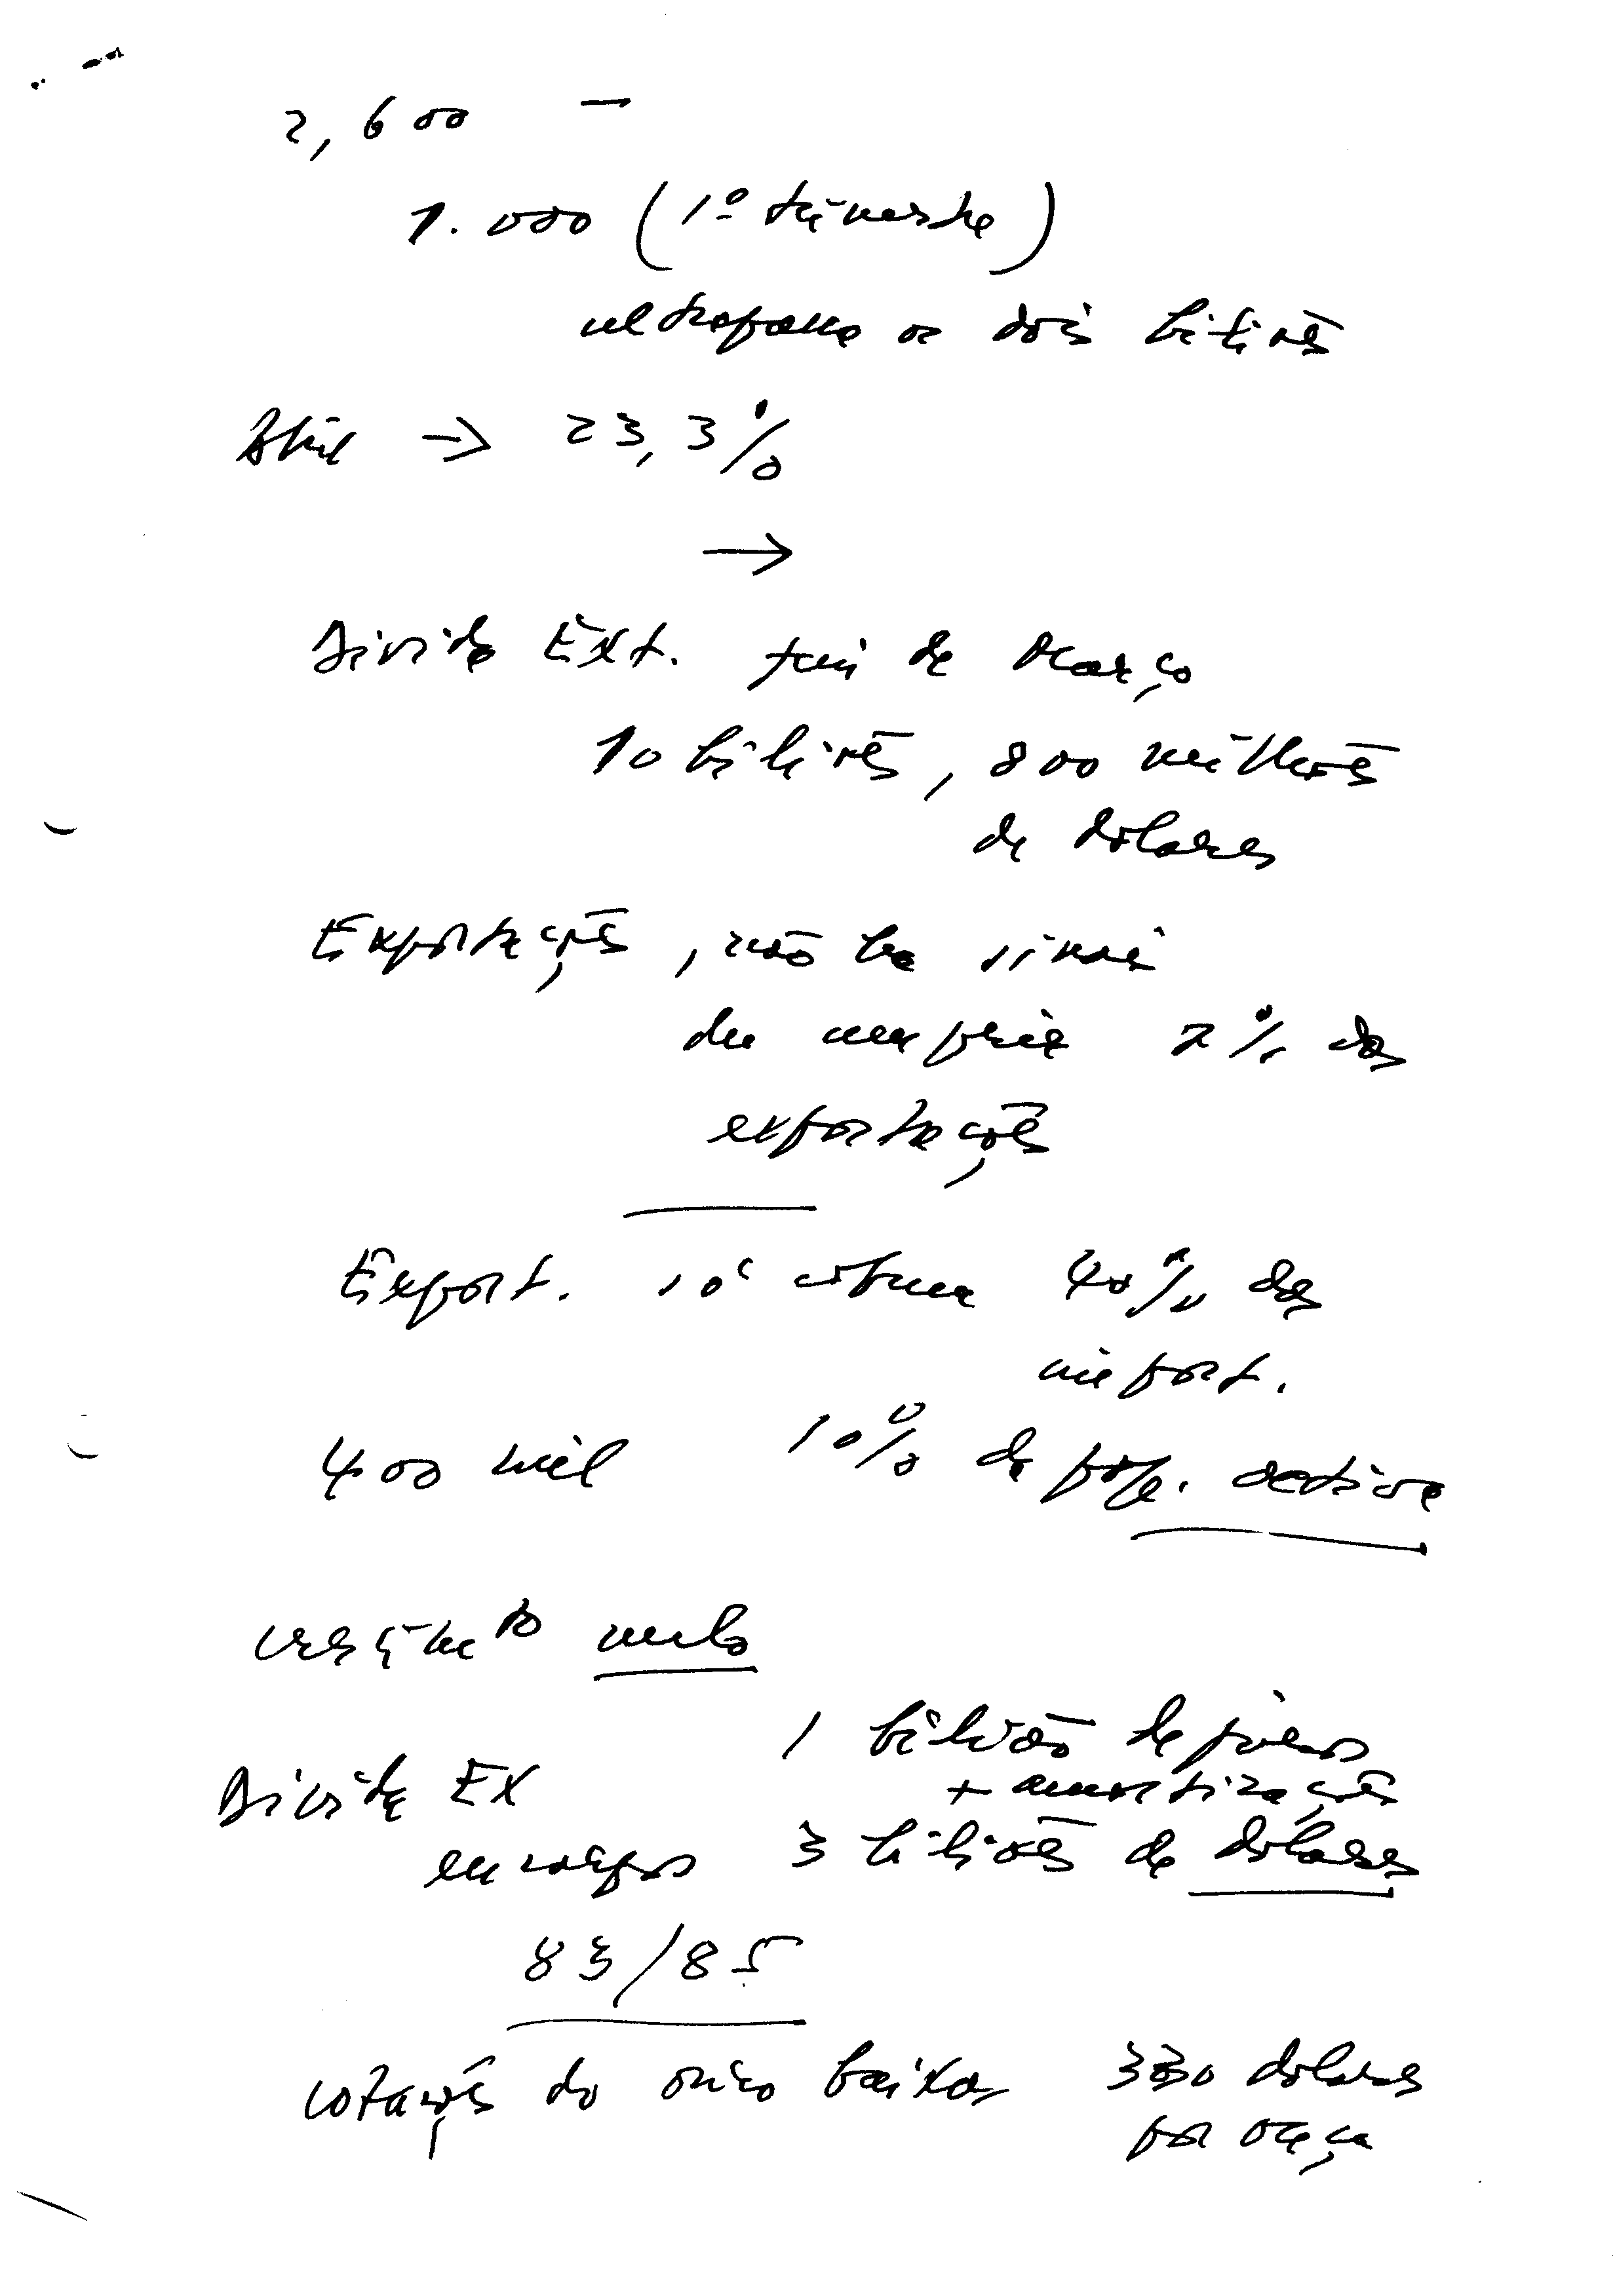 2,600 —
1.000 (1º trimestre)
ultrapassa os dois biliões
Abril → 23,3%
→
Divida Ext. fim de Março
10 biliões, 800 milhões
de dólares
Exportações, não há sinais
2% das
exportações
Export. só cobrem 40% das
import.
400 mil 10% da pop. activa
crescimento nulo
1 bilião de juros
Divida EX + amortizações
encargos 3 biliões de dólares
83/85
cotações do ouro baixas 330 dólares
por onça